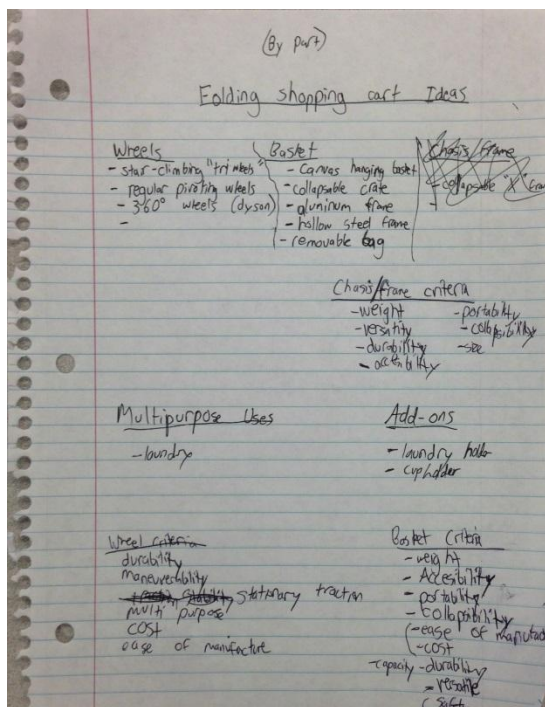 (By part)
Folding shopping cart Ideas
Wheels
- stair-climbing "tri wheels"
- regular pivoting wheels
- 360° wheels (dyson)
-
Basket
- canvas hanging basket
- collapsable crate
- aluminum frame
- hollow steel frame
- removable bag
Chasis/frame
- collapsable "X" frame
-
Chasis/frame criteria
- weight
- versitity
- durability
- accesibility
- portability
- collapsibility
- size
Multipurpose Uses
- laundry
Add-ons
- laundry holder
- cupholder
Wheel criteria
durability
maneuverability
stability stationary traction
multi purpose
cost
ease of manufacture
Basket Criteria
- weight
- Accesibility
- portability
- collapsibility
- ease of manufac
- cost
- capacity - durability
- versatile